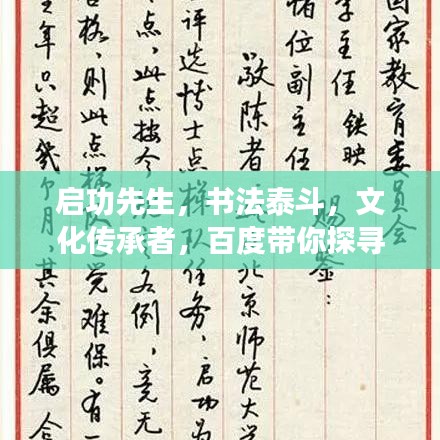 国家教育委员会
李主任铁映
诸位副主任
鉴：
敬陈者 北京师范大学
评选博士点梯队任务，启功为
点，此点按今 名例，竟无
合格，则此点 觉难保。有一
年只超几个月其余俱属合
启功先生，书法泰斗，文
化传承者，百度带你探寻